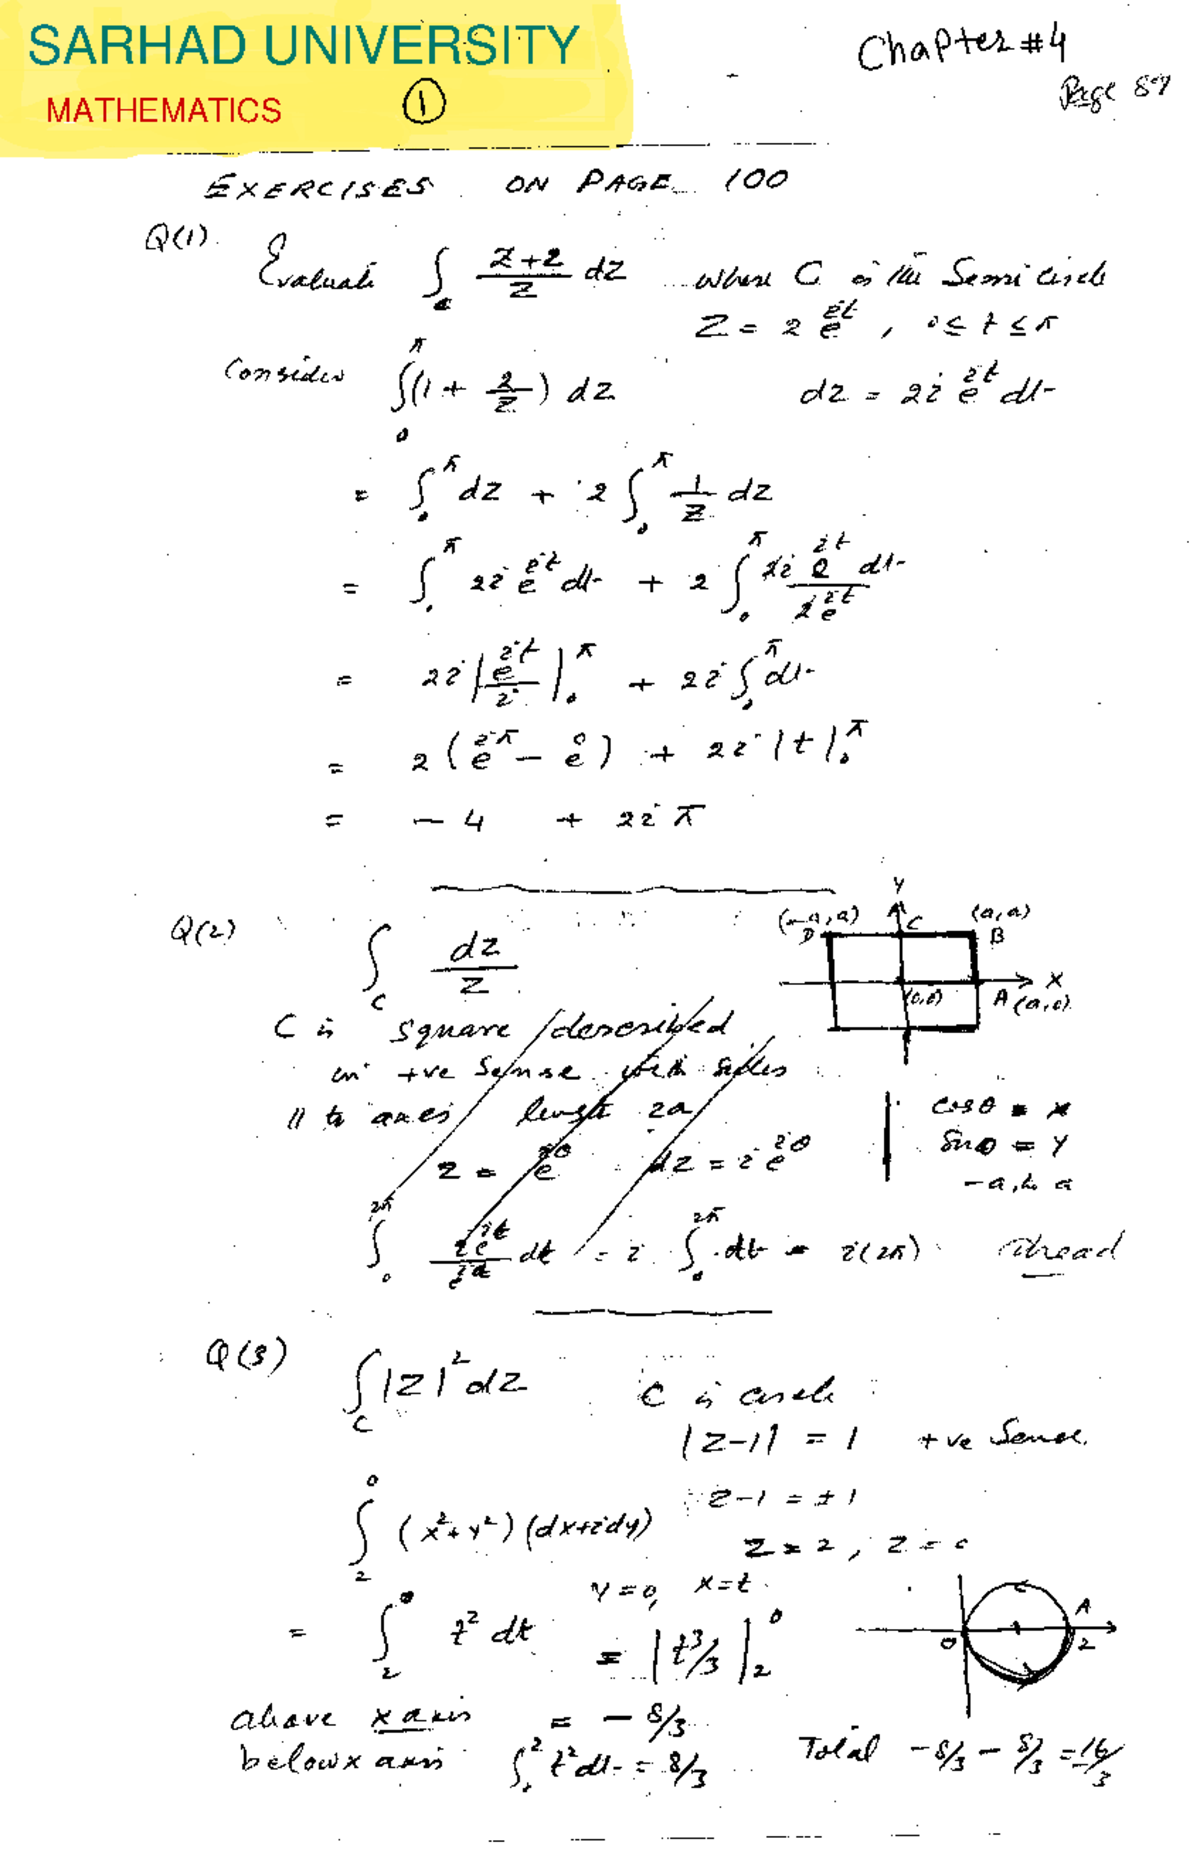 SARHAD UNIVERSITY
MATHEMATICS
①
Chapter #4
Page 87
EXERCISES ON PAGE 100
Q(1) Evaluate ∫_c (z+2)/z dz where C is the Semi circle
z = 2 e^{it} , 0 ≤ t ≤ π
Consider ∫_0^π (1 + 2/z) dz dz = 2i e^{it} dt
= ∫_0^π dz + 2 ∫_0^π 1/z dz
= ∫_0^π 2i e^{it} dt + 2 ∫_0^π 2i e^{it} dt / 2e^{it}
= 2i |e^{it}/i|_0^π + 2i ∫_0^π dt
= 2 (e^{iπ} − e^0) + 2i |t|_0^π
= − 4 + 2i π
Q(2) ∫_C dz/z
(-a,a) D Y C (a,a) B
(0,0) A (a,0) X
C is square described
in +ve Sense with sides
|| to axes length 2a
cosθ = x
Sinθ = y
z = e^{iθ} dz = i e^{iθ}
-a to a
∫_0^{2π} ie^{it}/e^{it} dt = i ∫_0^{2π} dt = i(2π) Ahead
Q(3) ∫_C |z|^2 dz C is circle
|z-1| = 1 +ve Sense
z-1 = ±1
∫_2^0 (x^2+y^2)(dx+idy)
z = 2, z = 0
y=0, x=t
= ∫_2^0 t^2 dt = |t^3/3|_2^0
O A 2
above x axis = - 8/3
below x axis ∫_0^2 t^2 dt = 8/3 Total -8/3 - 8/3 = 16/3